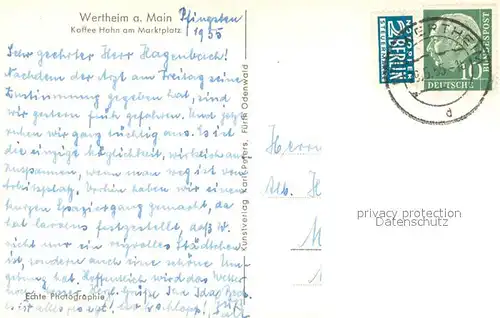 Wertheim a. Main
Kaffee Hahn am Marktplatz
Pfingsten
1955
Sehr geehrter Herr Hagenbach!
Nachdem der Arzt am Freitag seine
Zustimmung gegeben hat, sind
wir gestern früh gefahren. Und jetzt
ruhen wir ganz tüchtig aus. Es ist
die einzige Möglichkeit, wirklich aus-
zuspannen, wenn man weg ist vom
Arbeitsplatz. Vorhin haben wir einen
kurzen Spaziergang gemacht, da
hat festgestellt, daß W.
nicht nur ein Städtchen
ist, sondern auch eine schöne Um-
gebung hat. Hoffentlich wird das Wetter
Grüße Ihn Ida
ist alles
Echte Photographie
Kunstverlag Karl Peters, Fürth Odenwald
NOTOPFER
2 BERLIN
STEUERMARKE
DEUTSCHE
BUNDESPOST
10
WERTHEIM
d
Herrn
H
privacy protection
Datenschutz